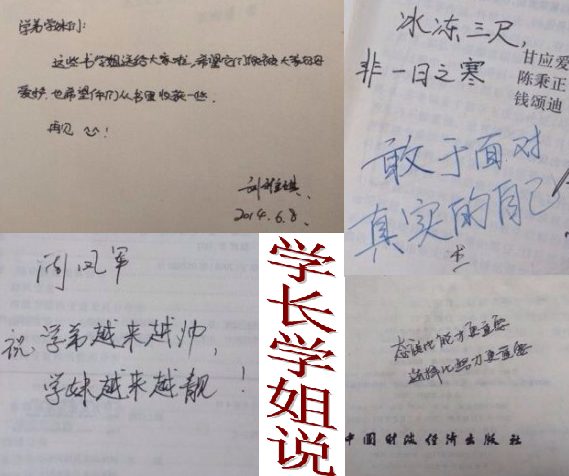 学弟学妹们:
这些书学姐送给大家啦,希望它们能被大家好好
爱护.也希望你们从书里收获一些.
再见 ^^!
2014.6.8.
冰冻三尺,
非一日之寒
甘应爱
陈秉正
钱颂迪
敢于面对
真实的自己
凤军
祝学弟越来越帅,
学妹越来越靓!
学长学姐说
态度比能力更重要
选择比努力更重要
中国财政经济出版社